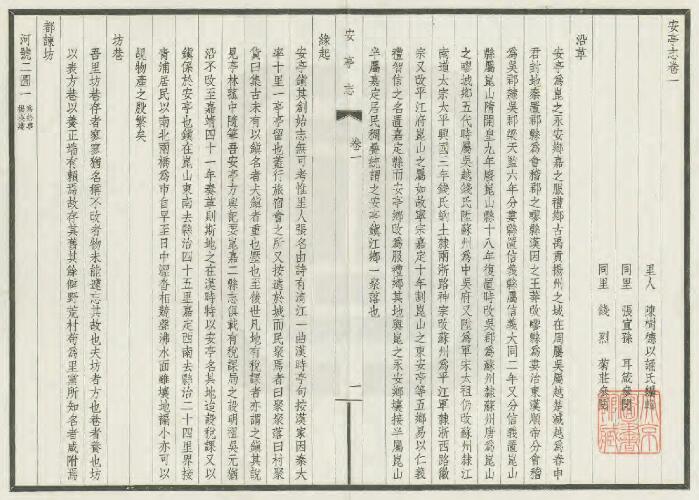 安亭志卷一
里人 陳樹德以誦氏編輯
同里 張宣孫 耳箴參閱
同里 錢烈 菊莊參閱
沿革
安亭爲崑之永安鄉嘉之服禮鄉古禹貢揚州之域在周屬吳屬越楚滅越爲春申
君封地秦置郡縣爲會稽郡之疁縣漢因之王莽改疁縣爲婁治東漢順帝分會稽
爲吳郡婁吳郡梁天監六年分婁縣置信義縣屬信義大同二年又分信義置崑山
縣屬崑山隋開皇九年廢崑山縣十八年復置時改吳郡爲蘇州隸蘇州唐爲崑山
之疁城鄉五代時屬吳越錢氏陞蘇州爲中吳府又陞爲軍宋太祖仍改蘇州隸江
南道太宗太平興國二年錢氏納土隸兩浙路神宗改蘇州爲平江軍隸浙西路徽
宗又改平江府崑山之屬如故寧宗嘉定十年割崑山之東安亭等五鄉易以仁義
禮智信之名置嘉定縣而安亭鄉改爲服禮鄉其地與崑之永安鄉壤接半屬崑山
半屬嘉定居民稠雜統謂之安亭鎮江鄉一聚落也
安亭志
卷一
一
緣起
安亭鎮其創始志無可考惟里人張名由詩有淸江一曲漢時亭句按漢家因秦大
率十里一亭亭留也蓋行旅宿會之所又按遠於城而民聚焉者曰聚聚落曰村聚
貨曰集古未有以鎮名者夫鎮者重也壓也至後世凡地有稅課者亦謂之鎮其說
見亭林菰中隨筆吾安亭方輿記婁崑嘉二縣志俱載有稅課局之設明濯吳元猶
沿不改至嘉靖四十一年奏革則斯地之在漢時特以安亭名其地迨設稅課又以
鎮係於安亭也鎮在崑山東南去縣治四十五里嘉定西南去縣治二十四里界接
青浦居民以南北兩橋爲市自早至日中澀沓相競聲沸水面雖壤地褊小亦可以
覘物產之殷繁矣
坊巷
吾里坊巷存者寥寥猶名稱不改者物未能遽忘其故也夫坊者方也巷者養也坊
以表方巷以養正端有賴焉故存其舊其餘僻野荒村苟爲里黨所知名者咸附焉
都諫坊
河號二圖一